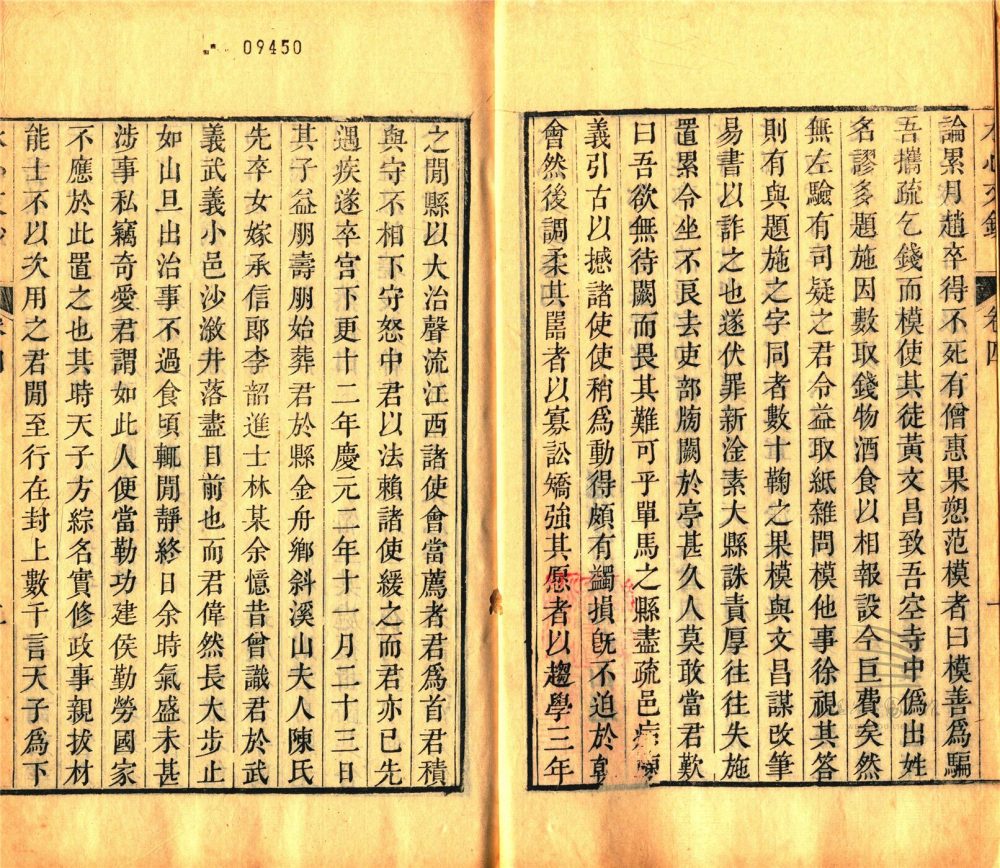 09450
論累月趙卒得不死有僧惠果愬范模者曰模善爲騙
吾攜疏乞錢而模使其徒黃文昌致吾空寺中僞出姓
名謬多題施因數取錢物酒食以相報設今巨費矣然
無左驗有司疑之君令益取紙雜問模他事徐視其答
則有與題施之字同者數十鞠之果模與文昌謀改筆
易書以詐之也遂伏罪新淦素大縣誅責厚往往失施
置累令坐不良去吏部牓闕於亭甚久人莫敢當君歎
曰吾欲無待闕而畏其難可乎單馬之縣盡疏邑病
義引古以撼諸使使稍爲動得頗有蠲損旣不迫於
會然後調柔其嚚者以寡訟矯強其愿者以趨學三年
之閒縣以大治聲流江西諸使會當薦者君爲首君積
與守不相下守怒中君以法賴諸使緩之而君亦已先
遇疾遂卒官下更十二年慶元二年十一月二十三日
其子益朋壽朋始葬君於縣金舟鄉斜溪山夫人陳氏
先卒女嫁承信郎李韶進士林某余憶昔曾識君於武
義武義小邑沙漵井落盡目前也而君偉然長大步止
如山旦出治事不過食頃輒閒靜終日余時氣盛未甚
涉事私竊奇愛君謂如此人便當勒功建侯勤勞國家
不應於此置之也其時天子方綜名實修政事親拔材
能士不以次用之君閒至行在封上數千言天子爲下